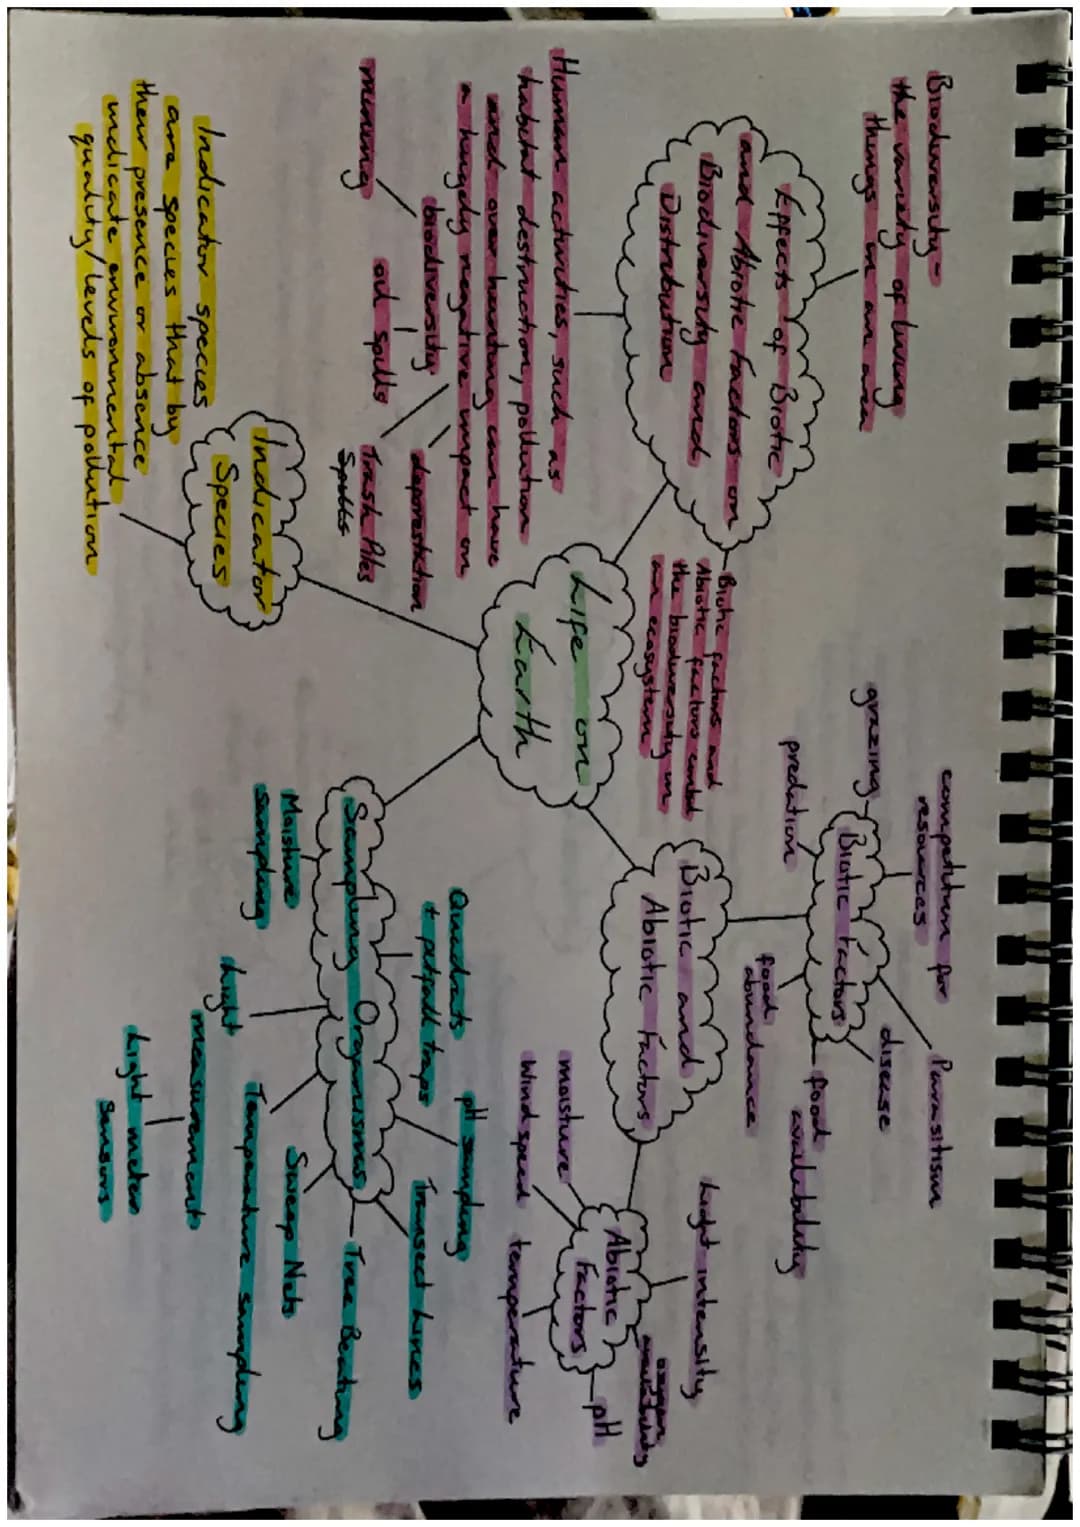 Biodiversity-
the variety of living
things in an area
Effects of Biotic
and Abiotic Factors on
Biodiversity and
Distribution
Biotic factors and
Abiotic factors control
the biodiversity in
an ecosystem
Human activities, such as
habitat destruction, pollution
and over hunting can have
a hugely negative impact on
biodiversity
mining
oil spills
deforestation
Trash Piles
Spills
Indicator
Species
Indicator species
are species that by
their presence or absence
indicate environmental
quality/levels of pollution
Life on
Earth
competition for
resources
Parasitism
grazing
Biotic Factors
disease
predation
food
abundance
food
availability
Biotic and
Abiotic Factors
Light intensity
oxygen
availability
Abiotic
Factors
pH
moisture
Wind speed
temperature
Quadrats
+ pitfall traps
pH sampling
Transect Lines
Sampling Organisms
Tree Beating
Moisture
sampling
Sweep Nets
Temperature sampling
Light
measurement
Light meter
Sensors